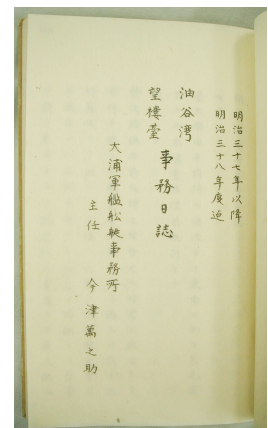 明治三十七年以降
明治三十八年度迄
油谷湾
望樓臺
事務日誌
大浦軍艦舩艇事務所
主任
今津萬之助